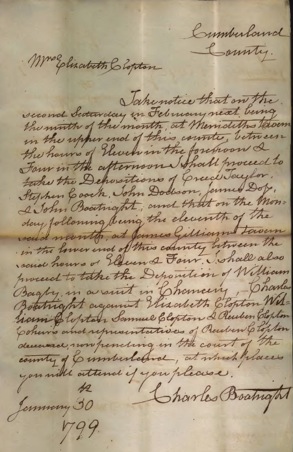 Cumberland
County.
Mrs Elizabeth Clopton
Take notice that on the
second Saturday in February next being
the ninth of the month, at Merideths tavern
in the upper end of this county, between
the hours of Eleven in the forenoon &
Four in the afternoon I shall proceed to
take the Depositions of Creed Taylor,
Stephen Cook, John Dodson, James Doss,
& John Boatright, and that on the Mon-
day following being the eleventh of the
said month, at James Gilliams tavern
in the lower end of this county between the
said hours of Eleven & Four, I shall also
proceed to take the Deposition of William
Bagby in a suit in Chancery, Charles
Boatright against Elizabeth Clopton Wil-
liam Clopton Samuel Clopton & Reuben Clopton
and representatives of Reuben Clopton
deceased, now pending in the court of the
county of Cumberland, at which places
you will attend if you please.
Charles Boatright
January 30th
1799